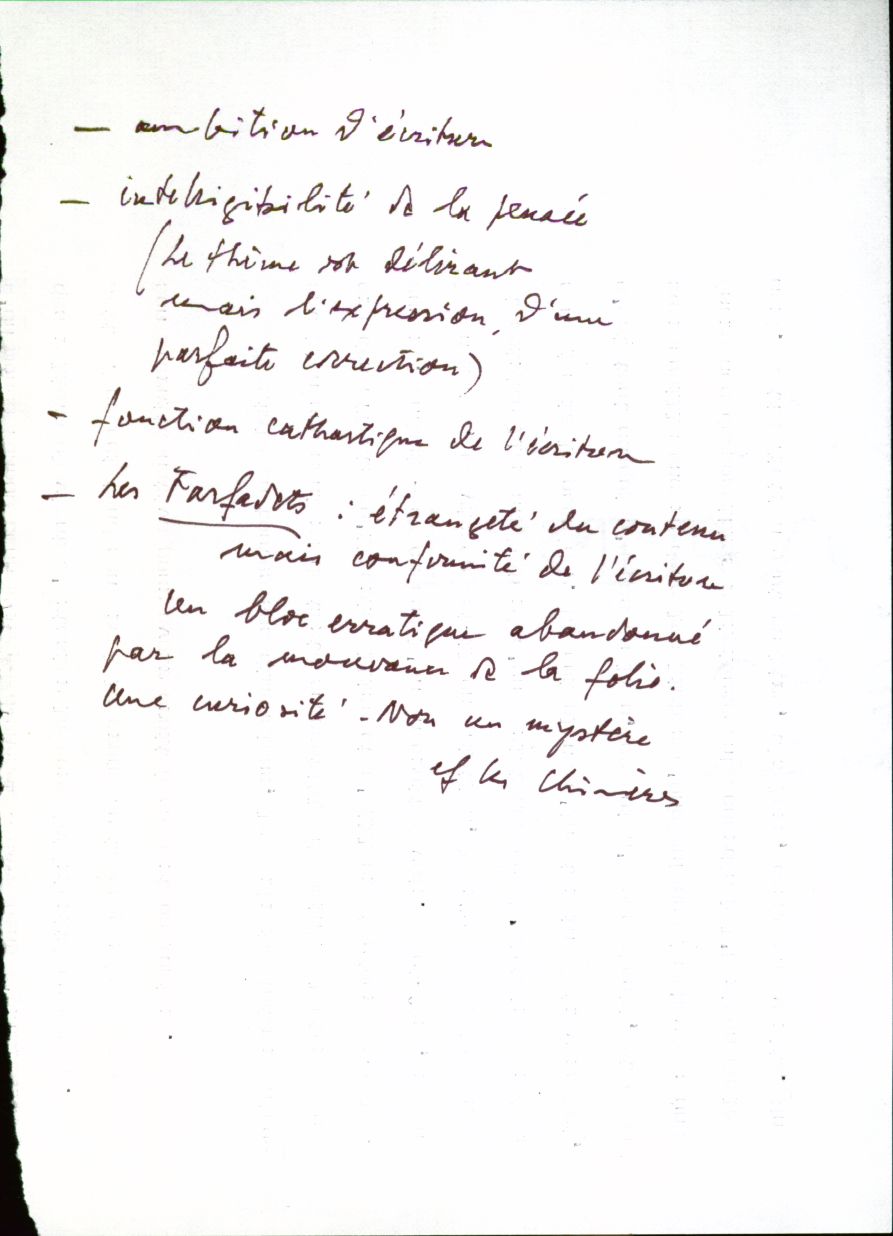 — ambition d'écriture
— intelligibilité de la pensée
(Le thème est délirant
mais l'expression, d'une
parfaite correction)
- fonction cathartique de l'écriture
— Les Farfadets : étrangeté du contenu
mais conformité de l'écriture
Un bloc erratique abandonné
par la mouvance de la folie.
Une curiosité - Non un mystère
cf les Chimères